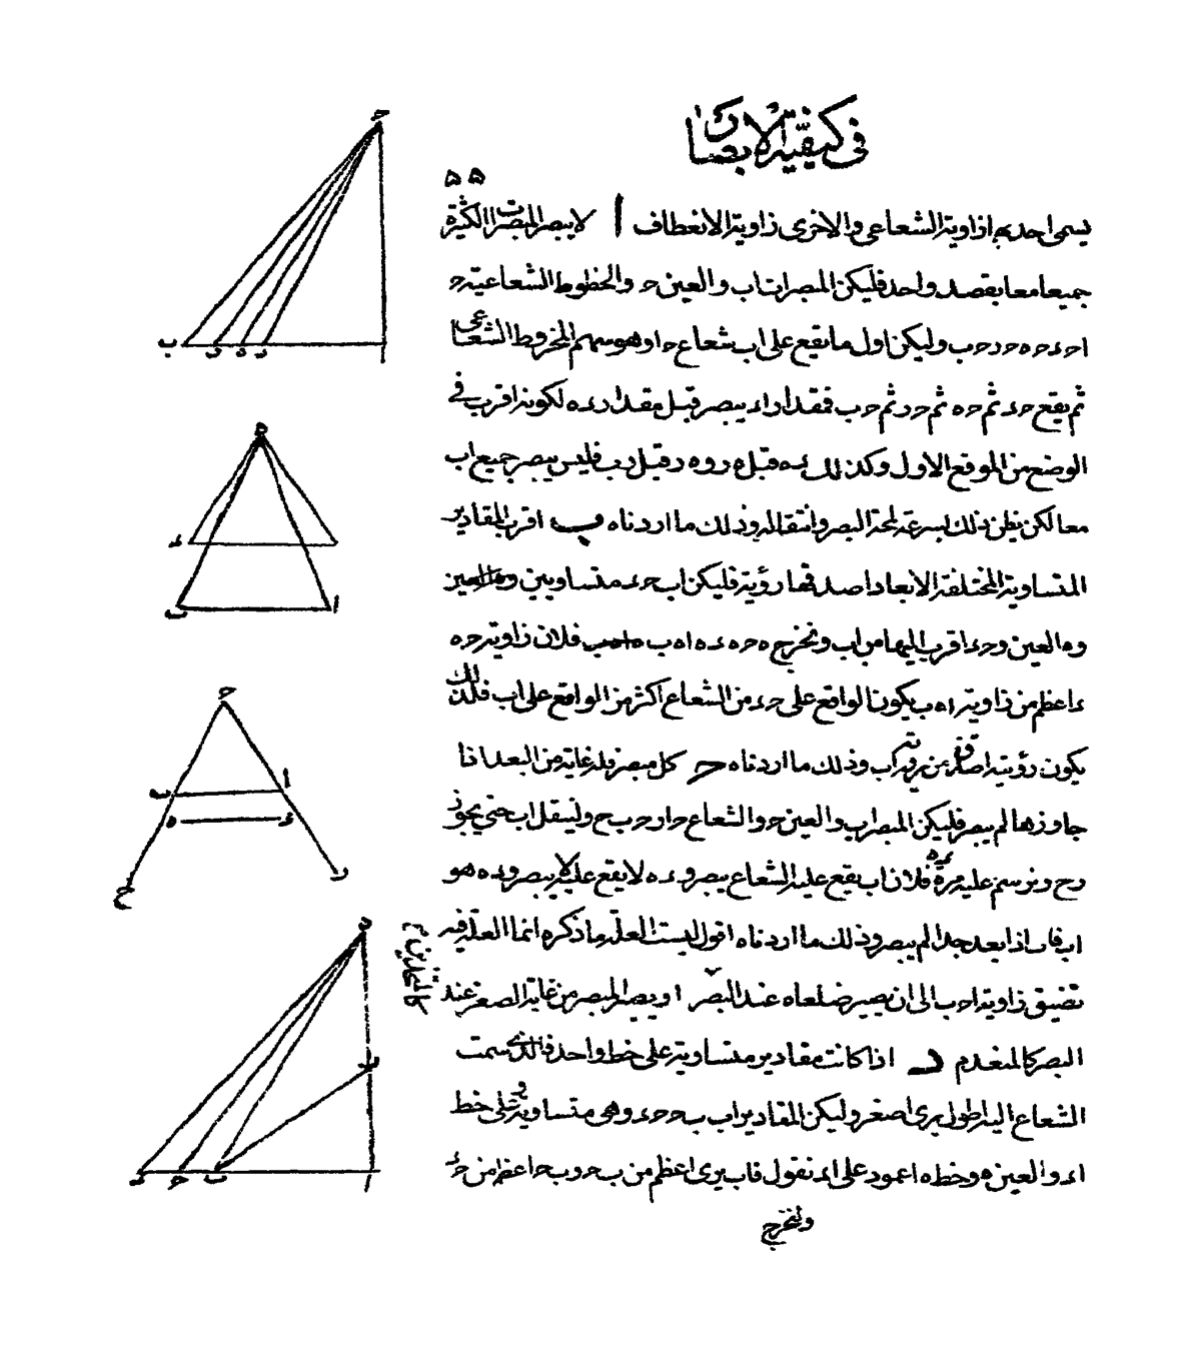 في كيفية الابصار
٥٥
يسمى احديهما زاوية الشعاعى والاخرى زاوية الانعطاف ا لا يبصر المبصرات الكثيرة
جميعا معا بقصد واحد فليكن المبصرات اب والعين ح والخطوط الشعاعية ح
ا حء حه حر حب وليكن اول ما يقع على اب شعاع حا وهو سهم المخروط الشعاعى
ثم يقع حء ثم حه ثم حر ثم حب فمقدار اء يبصر قبل مقدار ءه لكونه اقرب فى
الوضع من الموقع الاول وكذلك ءه قبل ه ر و ه ر قبل رب فليس يبصر جميع اب
معا لكن يظن ذلك لسرعة لمحة البصر وانتقاله وذلك ما اردناه ب اقرب المقادير
المتساوية المختلفة الابعاد اصدقها رؤية فليكن اب حء متساويين
وه العين وحء اقرب اليها من اب ونخرج ه ح ه ء ه ا ه ب فلان زاوية ح ه
ء اعظم من زاوية ا ه ب يكون الواقع على حء من الشعاع اكثر من الواقع على اب فلذلك
يكون رؤيته اصدق من رؤية اب وذلك ما اردناه ح كل مبصر فله غاية من البعد اذا
جاوزها لم يبصر فليكن المبصر اب والعين ح والشعاع حار حب ح ولينتقل اب حتى يجوز
رح ونرسم عليه ءه فلان اب يقع عليه الشعاع يبصر و ءه لا يقع عليه لا يبصر و ءه هو
اب فاب اذا بعد جدا لم يبصر وذلك ما اردناه اقول ليست العلة ما ذكره انما العلة فيه
تضيق زاوية احب الى ان يصير ضلعاه عند البصر او يصير المبصر من غاية الصغر عند
كالمتحدين
البصر كالمنعدم د اذا كانت مقادير متساوية على خط واحد فالذى سمت
الشعاع اليه اطول يرى اصغر وليكن المقادير اب بح حء وهى متساوية وعلى خط
اء والعين ه وخط ه ا عمود على اء نقول فاب يرى اعظم من بح و بح اعظم من حء
ولنخرج
ح
ب ر ه د ا
ه
ء
ب ا
ح
ب ا
ه ء
ح ر
ه
ر
ء ح ب ا